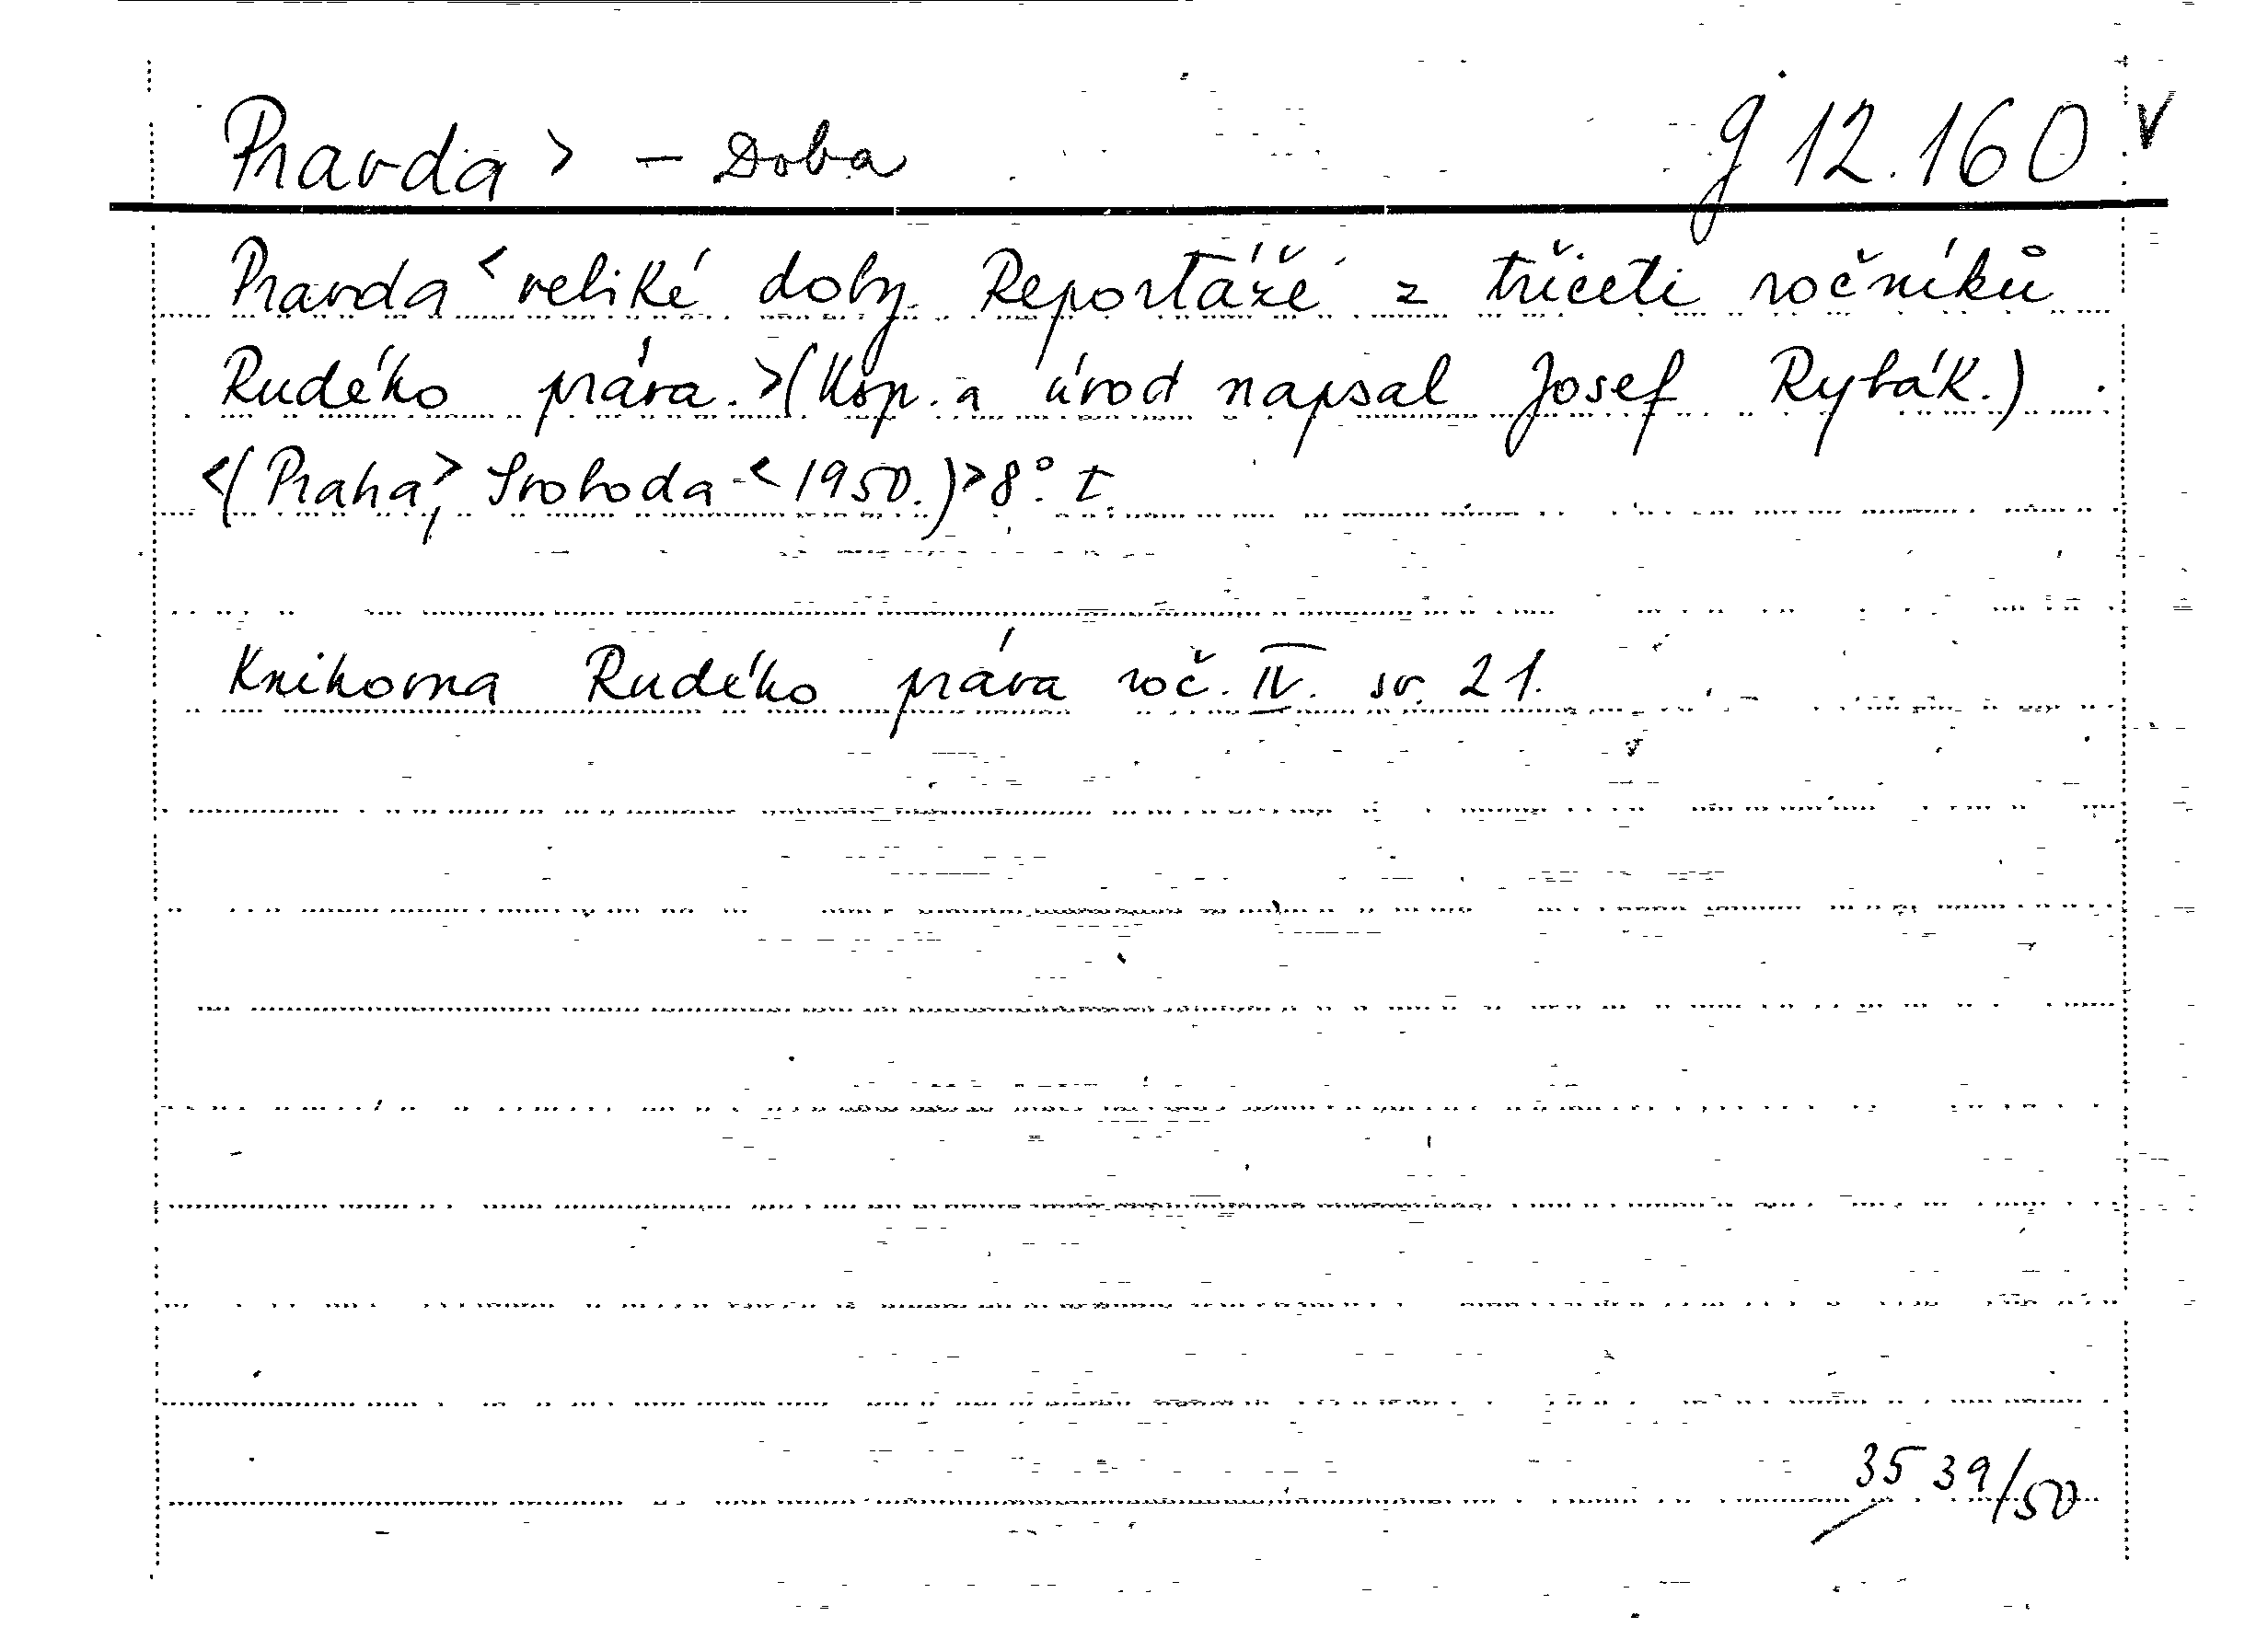 Pravda > - Doba g 12.160 v
Pravda < veliké doby. Reportáže z třiceti ročníků
Rudého práva. > (Usp. a úvod napsal Josef Rybák.)
<(Praha,> Svoboda < 1950.)> 8°. t.
Knihovna Rudého práva roč. IV. sv. 21.
3539/50